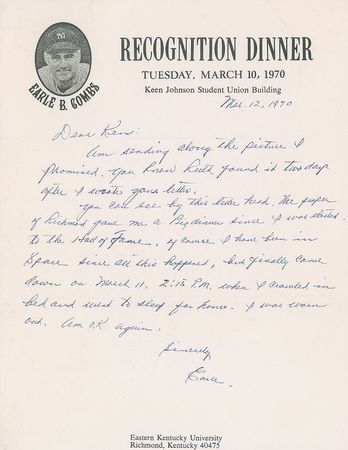 EARLE B. COMBS
RECOGNITION DINNER
TUESDAY, MARCH 10, 1970
Keen Johnson Student Union Building
Mar. 12, 1970
Dear Ken:
Am sending along the picture I
promised. You know Ruth found it two days
after I wrote your letter.
You can see by this letter head. The people
of Richmond gave me a Big dinner since I was elected
to the Hall of Fame. of course I have been in
Space since all this happened, but finally came
down on March 11, 2:15 P.M. when I crawled in
bed and went to sleep for hours. I was worn
out. Am O.K. again.
Sincerely
Earle.
Eastern Kentucky University
Richmond, Kentucky 40475